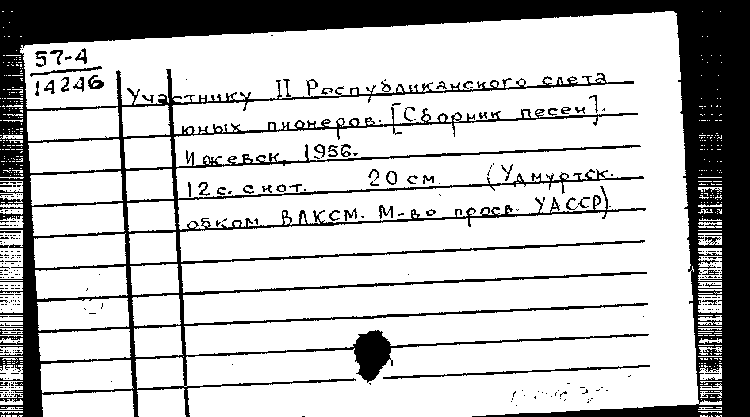 57-4
14246
Участнику II Республиканского слета
юных пионеров. [Сборник песен].
Ижевск, 1956.
12 с. с нот. 20 см (Удмуртск.
обком ВЛКСМ. М-во просв. УАССР)